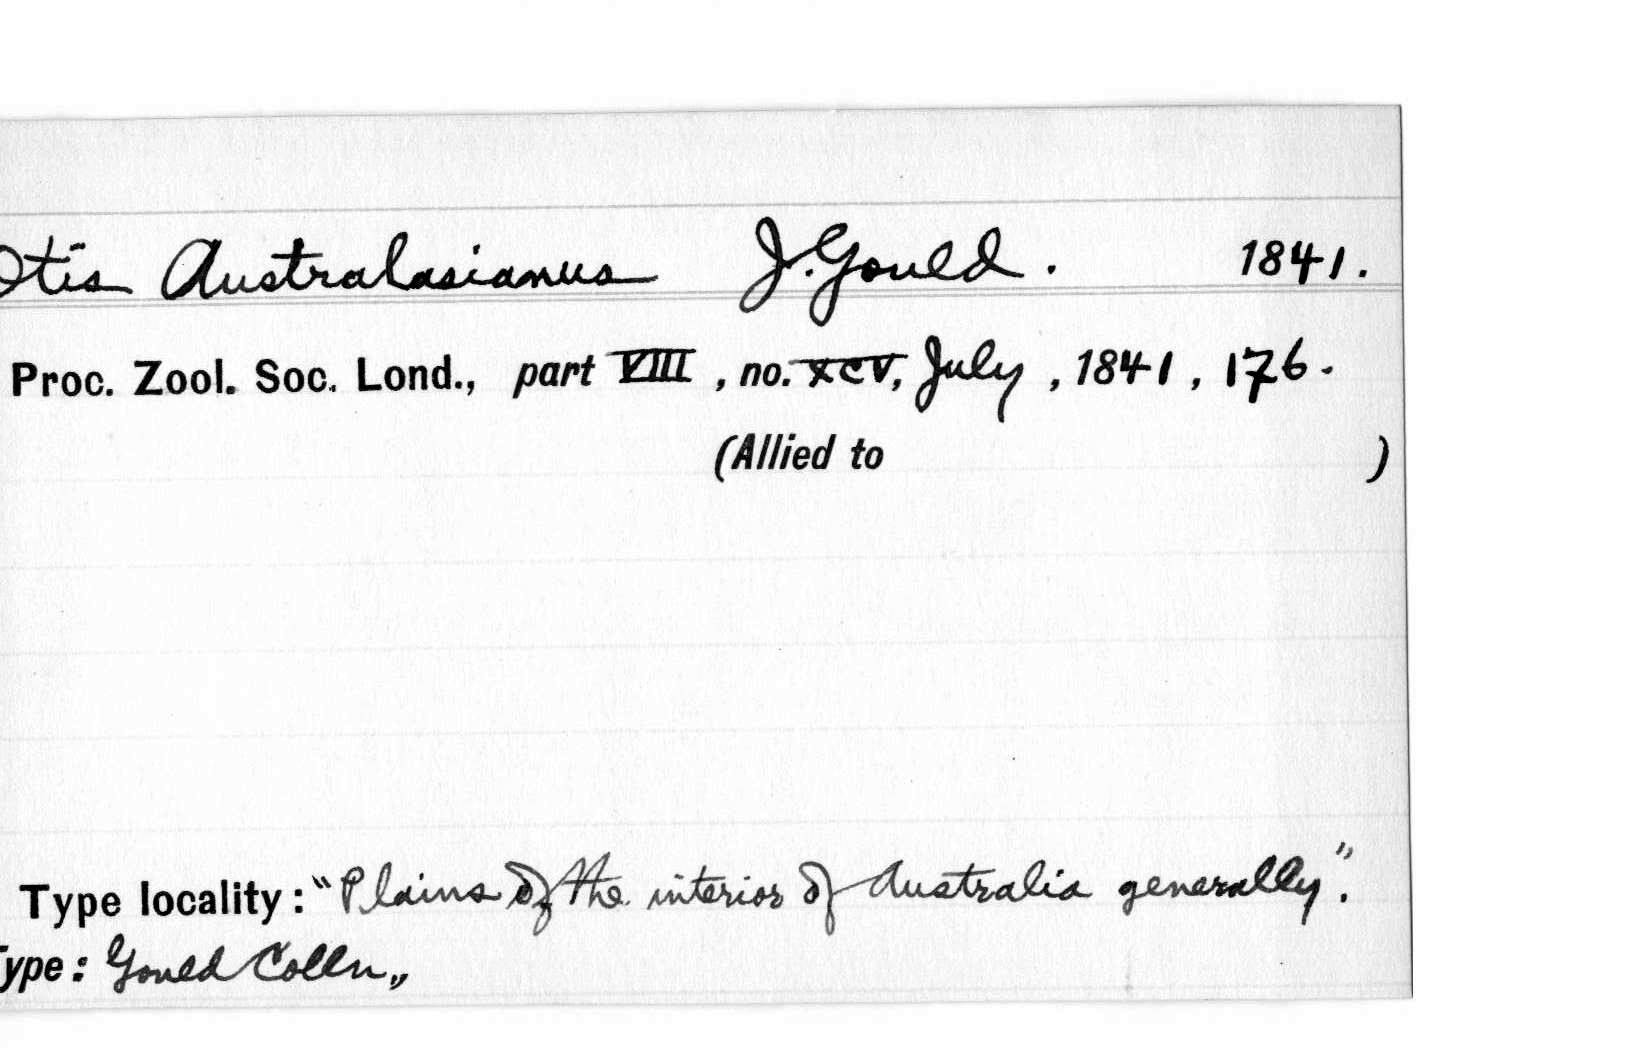 Otis Australasianus J. Gould. 1841.
Proc. Zool. Soc. Lond., part VIII, no. XCV, July, 1841, 176.
(Allied to )
Type locality: "Plains of the interior of Australia generally".
Type: Gould Colln,,